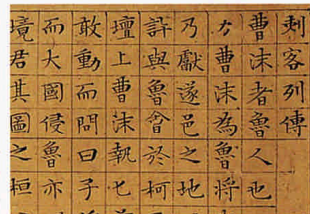 刺客列傳
曹沫者魯人也
力曹沫為魯將
乃獻遂邑之地
許與魯會於柯
壇上曹沫執匕
敢動而問曰子
而大國侵魯亦
境君其圖之桓